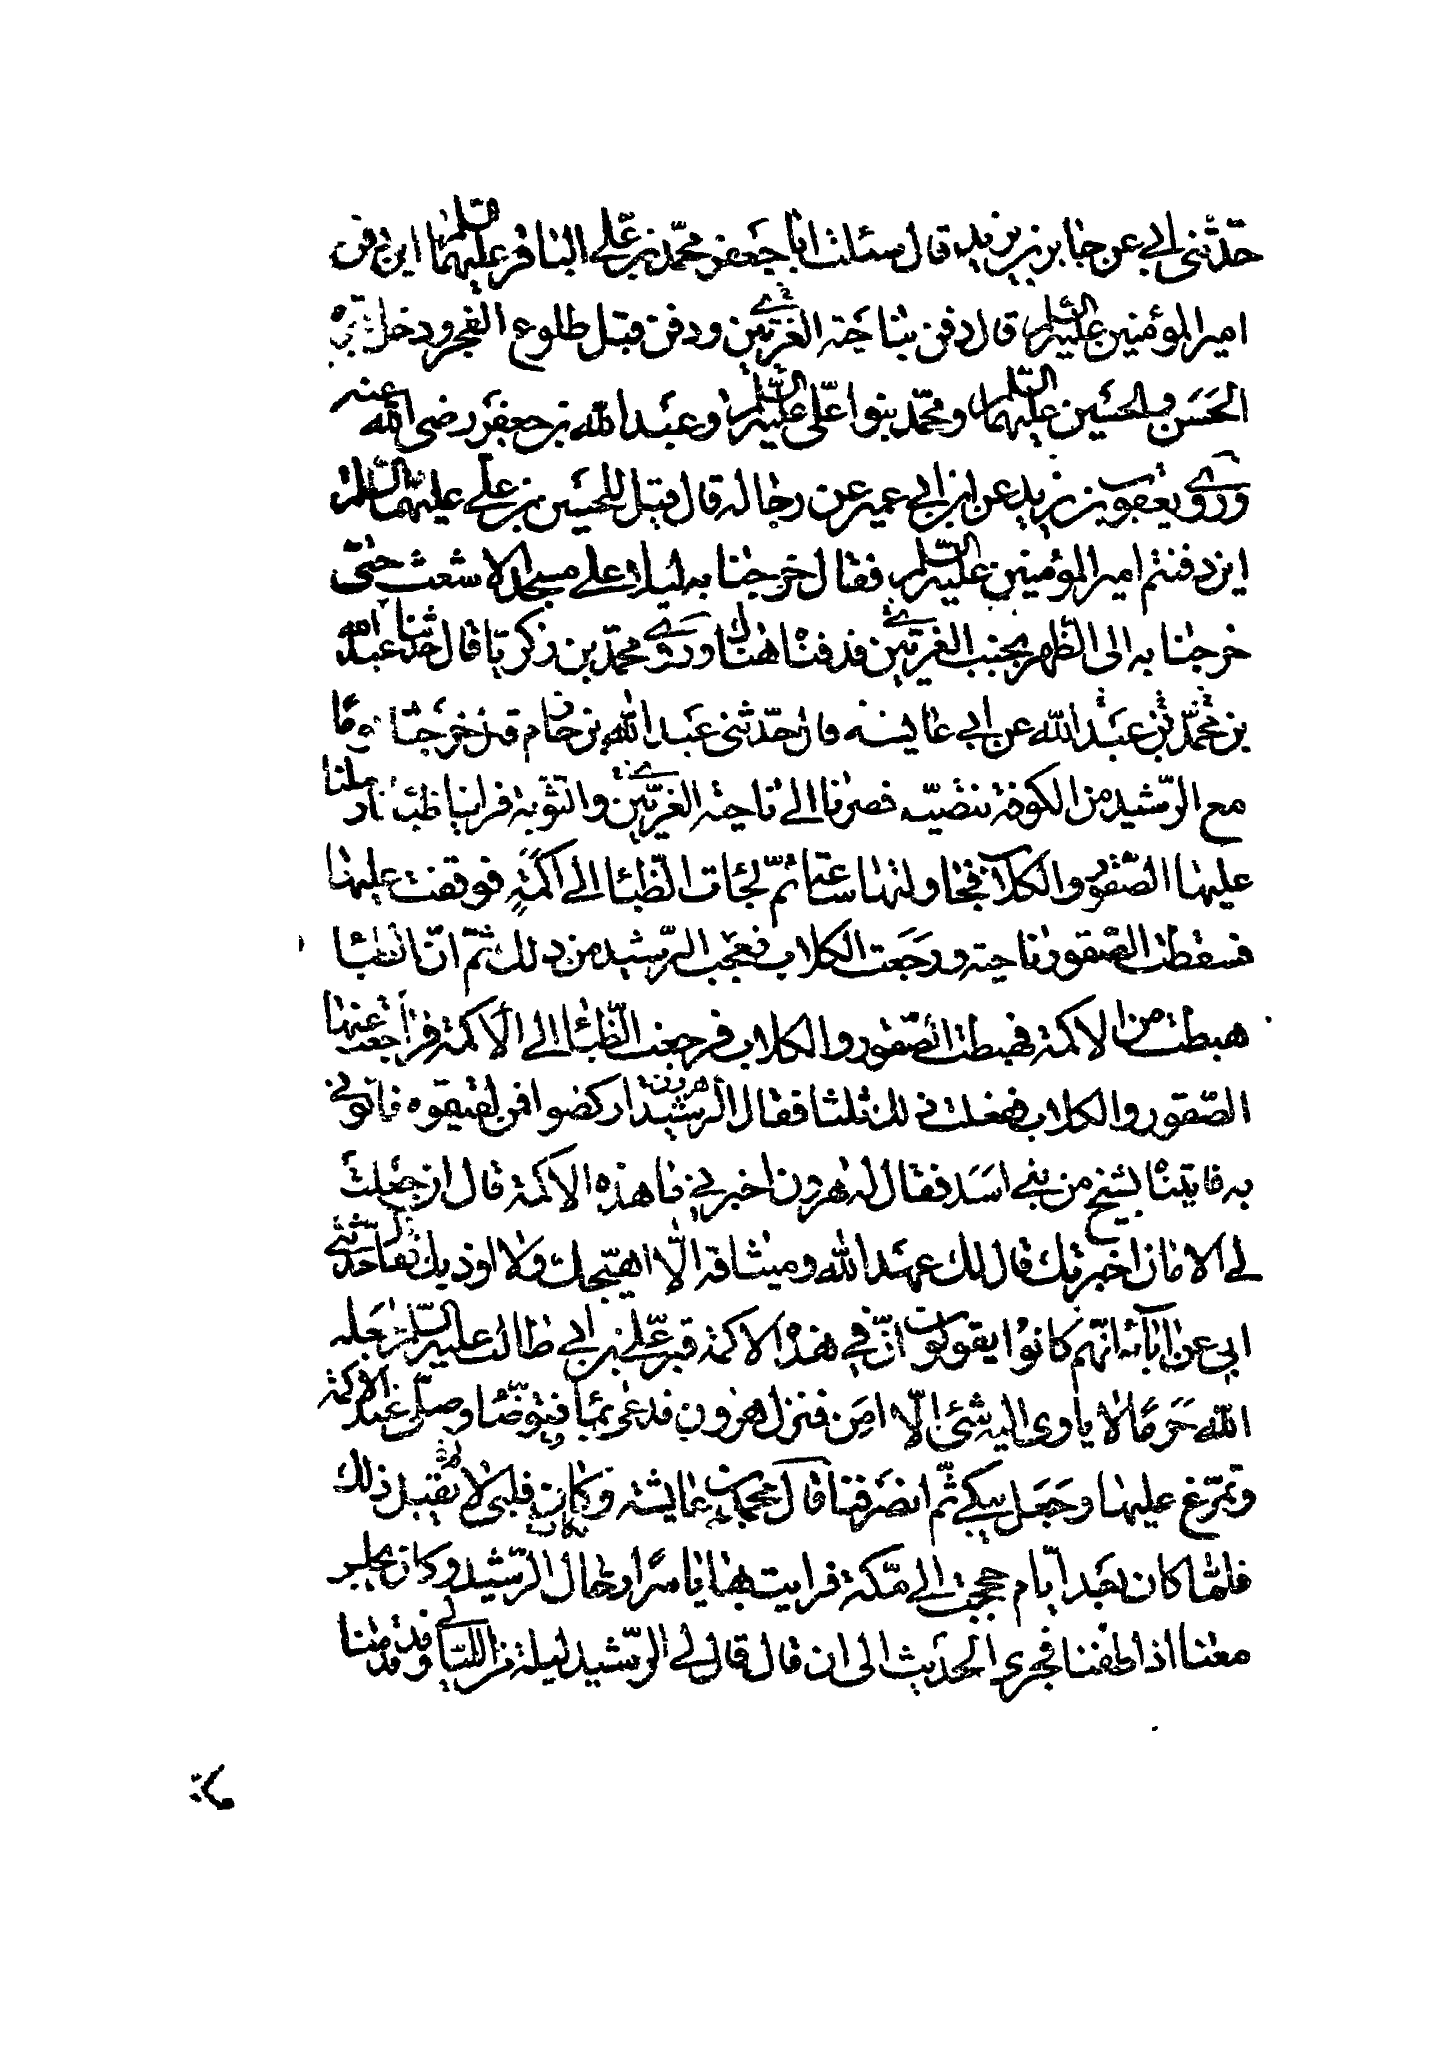 حدّثنى ابي عن جابر بن يزيد قال سئلت ابا جعفر محمّد بن علي الباقر عليهما السلم اين دفن
امير المؤمنين عليه السلم قال دفن بناحية الغريّين ودفن قبل طلوع الفجر ودخل قبره
الحَسَن والحسَين عليهما السّلم ومحمّد بنوا علّى عليه السّلم وعبَد الله بن جعفر رضى الله عنه
وروى يعقوب بن يزيد عن ابن ابي عمير عن رجاله قال قيل للحسَين بن علّي عليهما السّلم
اين دفنتم امير المؤمنين عليه السّلم فقال خرجنا به ليلا علي مسجد الاشعث حتّى
خرجنا به الى الظّهر بجنب الغريّين فدفناه هناك وروى محمّد بن زكريّا قال حدثنا عبد الله
بن محمّد بن عَبد الله عن ابي عايشه قال حدّثنى عَبد الله بن حازم قال خرَجنا يومًا
مع الرّشيد من الكوفة نتصيّد فصرنا الي ناحية الغريّين والثوية فراينا ظباء فارسلنا
عليها الصّقور والكلاب فجاولتها ساعة ثمّ لجأت الظّباء الي اكَمَةٍ فوقفت عليها
فسقطت الصّقور ناحية ورجَعت الكلاب فعجب الرّشيد من ذلك ثمّ انّ الظباء
هبطت من الاكمة فهبطت الصّقور والكلاب فرجعت الظّباء الي الاكمة فتراجعت عنها
الصّقور والكلاب ففعلت ذلك ثلثا فقال الرشيد هرون اركضوا فمن لقيتموه فاتونى
به فاتيناه بشيخ من بني اسَد فقال له هرون اخبرني ما هذه الاكمة قال ان جعَلت
لي الامان اخبرتك قال لك عهَد الله وميثاقه الّا اهيّجك ولا اوذيك فقال حدّثني
ابى عن ابآئه انّهم كانوا يقولون انّ في هذه الاكمة قبر علّي بن ابي طالب عليه السّلم جَعله
الله حَرمًا لا ياوى اليه شئ الّا امِن فنزل هرون فدعى بماء فتوضّا وصلّى عند الاكمة
وتمرّغ عليها وجَعَل يبكي ثّم انصَرفنا قال محمد بن عايشة وكان قلبى لا يقبل ذلك
فلمّا كان بعَد ايّام حججت الي مّكة فرايت بها ياسرًا رحّال الرّشيد وكان يجلس
معنا اذا طفنا فجرى الحَديث الى ان قال قال لي الرّشيد ليلة من الليّالي وقد قدمنا